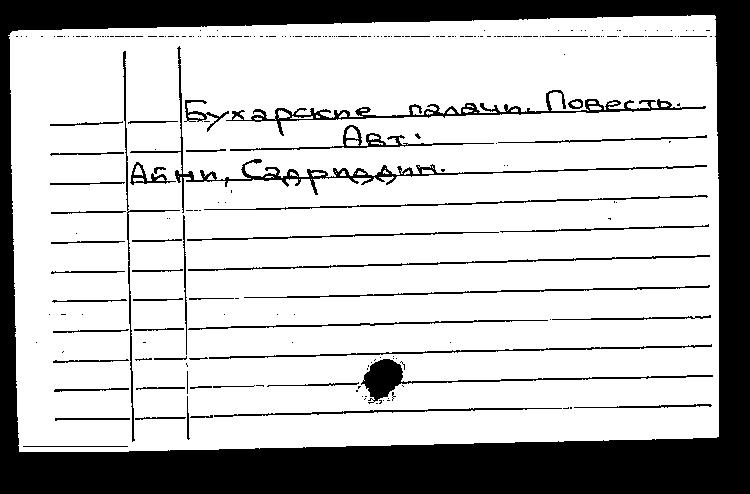 Бухарские палачи. Повесть.
Авт:
Айни, Садриддин.